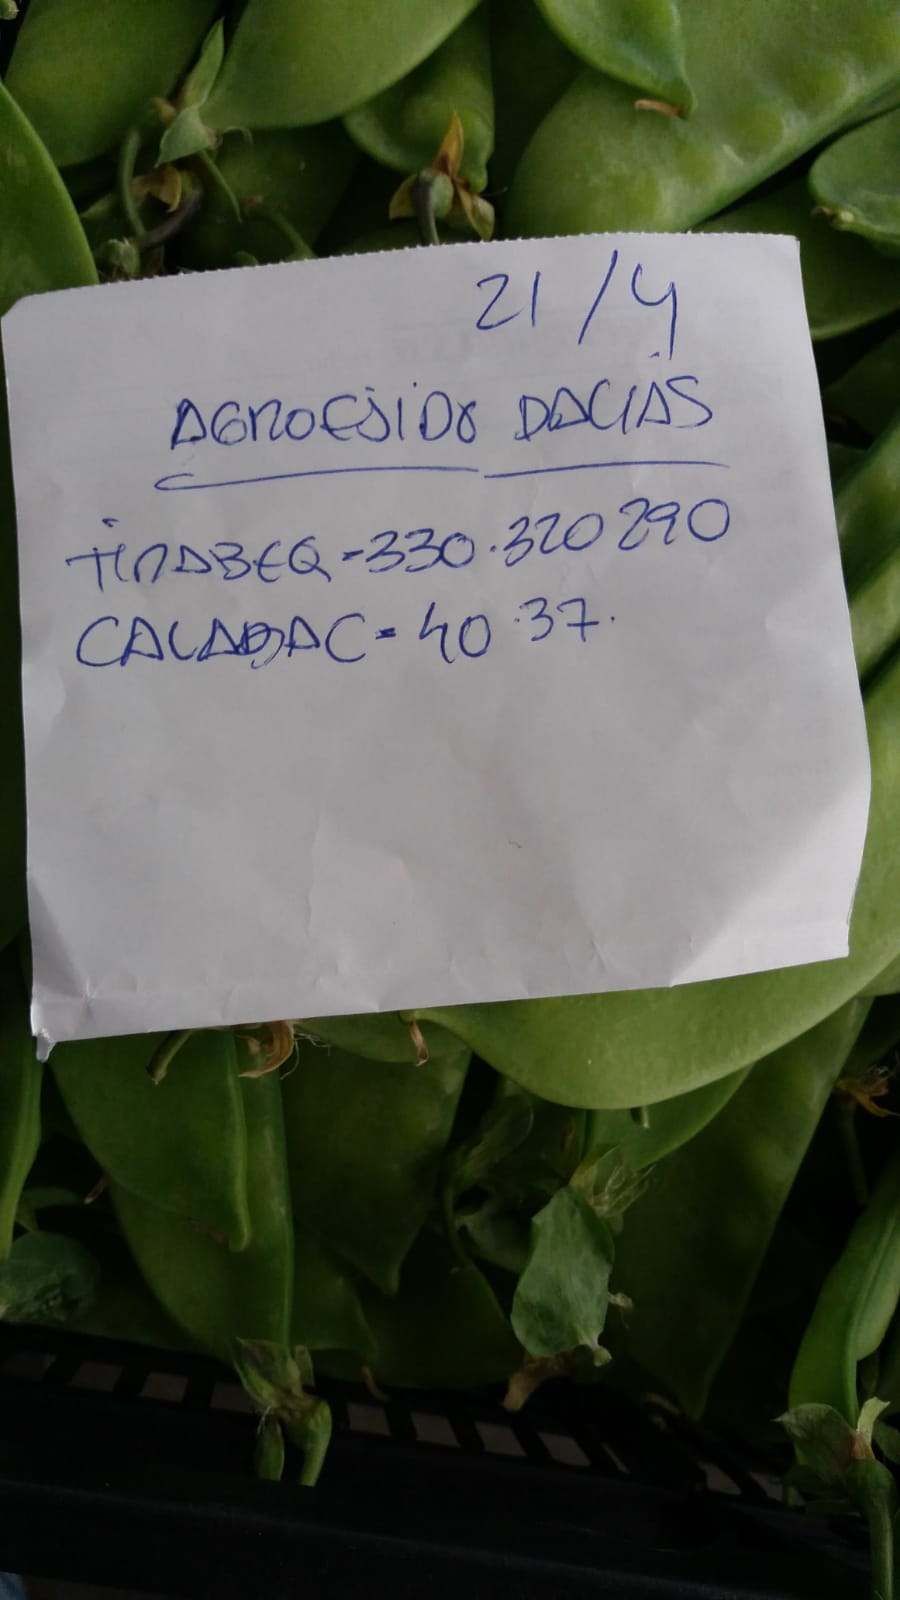 21/4
AGROEJIDO DALIAS
TIRABEQ - 330.320 290
CALABAC = 40.37.